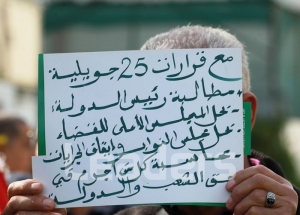 مع قرارات 25 جويلية
مطالبة رئيس الدولة:
بحل المجلس الأعلى للقضاء
بحل مجلس النواب وإيقاف الجرايات
محاسبة كل من أجرم في
حق الشعب والدولة
Leaders